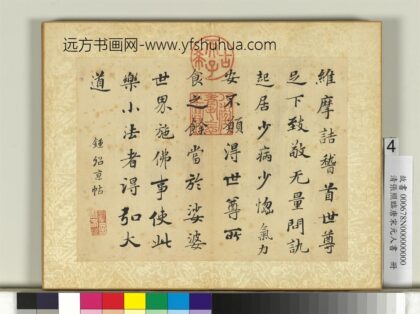 远方书画网-www.yfshuhua.com
維摩詰稽首世尊
足下致敬无量問訊
起居少病少惱氣力
安不願得世尊所
食之餘當於娑婆
世界施佛事使此
樂小法者得弘大
道
鍾紹京帖
4
故書 000678N00000000
清張照臨唐宋元人書 冊